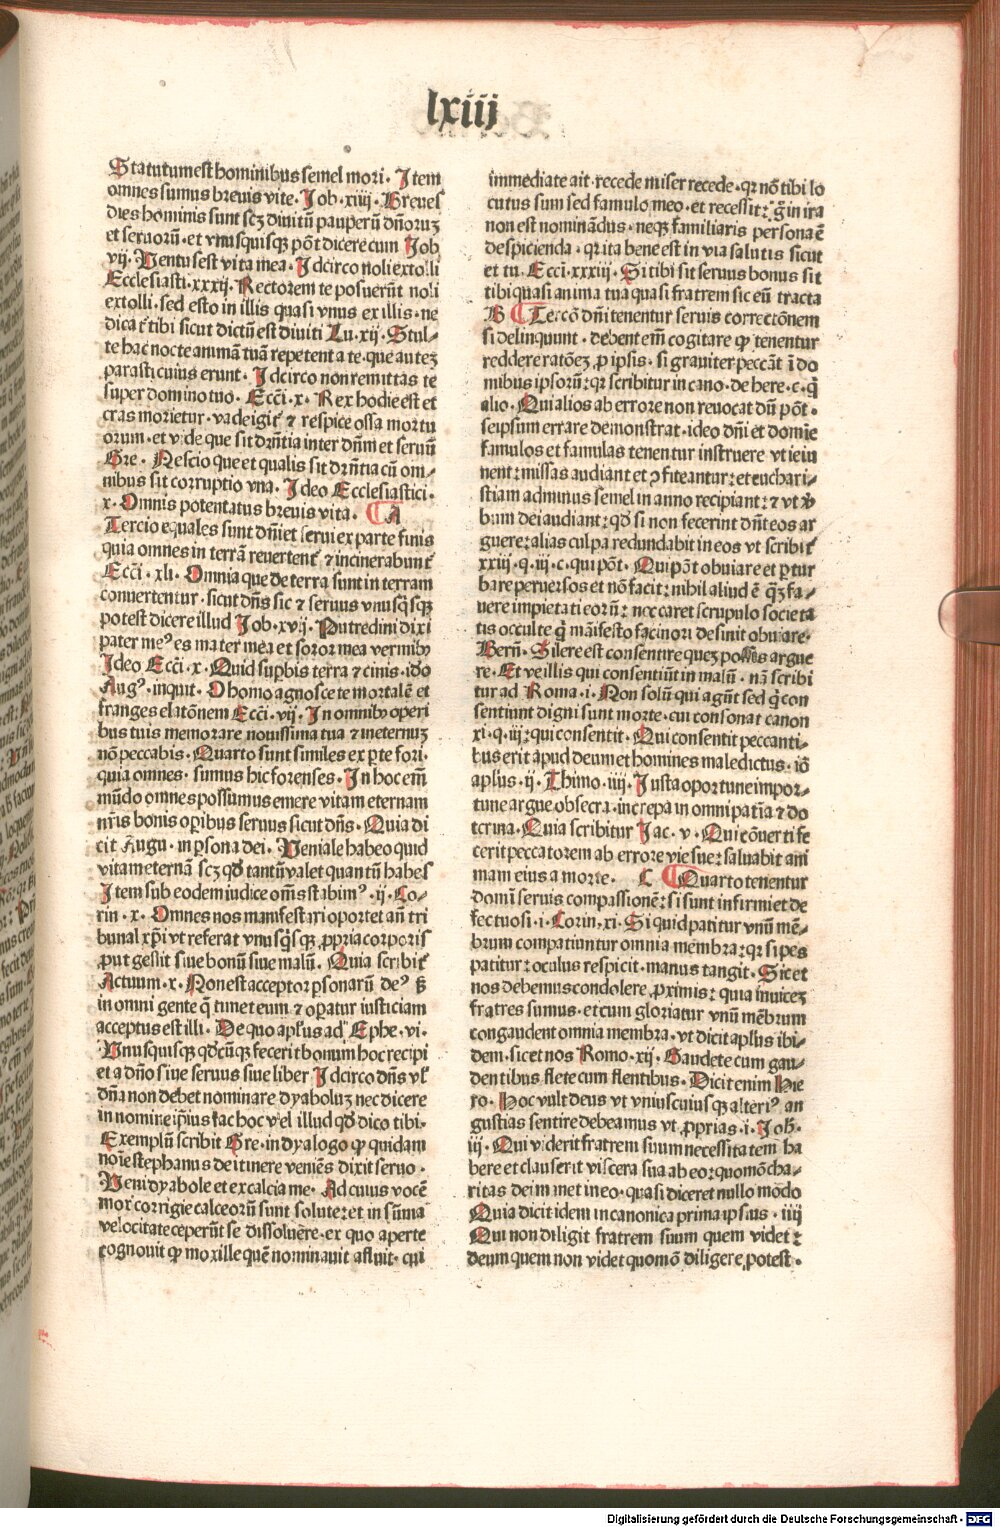 lxiij
Statutum est hominibus semel mori. Item
omnes sumus breuis vite. Job .xiiij. Breues
dies hominis sunt scz diuitū pauperū dn̄oruz
et seruorū. et vnusquisqz pōt dicere cum Job
vij. Ventus est vita mea. Idcirco noli extolli
Ecclesiasti. xxxij. Rectorem te posuerūt noli
extolli. sed esto in illis quasi vnus ex illis. ne
dicat̄ tibi sicut dictū est diuiti Lu. xij. Stul⸗
te hac nocte animā tuā repetent a te. que autez
parasti cuius erunt. Idcirco non remittas te
super domino tuo. Ecci. x. Rex hodie est et
cras morietur. vade igit̄ ⁊ respice ossa mortu
orum. et vide que sit dr̄ntia inter dn̄m et seruū
Gre. Nescio que et qualis sit dr̄ntia cū om⸗
nibus sit corruptio vna. Ideo Ecclesiastici.
x. Omnis potentatus breuis vita. ¶ A
Tercio equales sunt dn̄i et serui ex parte finis
quia omnes in terrā reuertent̄ ⁊ incinerabunt̄
Ecci. xli. Omnia que de terra sunt in terram
conuertentur. sicut dn̄s sic ⁊ seruus vnusq̄sqz
potest dicere illud Job. xvij. Putredini dixi
pater meꝰ es mater mea et soror mea vermibꝰ
Ideo Ecci. x. Quid supbis terra ⁊ cinis. ido
Augꝰ. inquit. O homo agnosce te mortalē et
franges elatōnem Ecci. vij. In omnibꝰ operi
bus tuis memorare nouissima tua ⁊ ineternuz
nō peccabis. Quarto sunt similes ex pte fori.
quia omnes sumus hic forenses. In hoc em̄
mūdo omnes possumus emere vitam eternam
nr̄is bonis opibus seruus sicut dn̄s. Quia di
cit Augu. in psona dei. Veniale habeo quid
vitam eternā scz qd̄ tantū valet quantū habes
Item sub eodem iudice om̄s stabimꝰ. ij. Co⸗
rin. x. Omnes nos manifestari oportet an̄ tri
bunal xp̄i vt referat vnusq̄sqz ꝓpria corporis
ꝓut gessit siue bonū siue malū. Quia scribit̄
Actuum. x. Non est acceptor psonarū deꝰ s̄
in omni gente q̄ timet eum ⁊ opatur iusticiam
acceptus est illi. De quo apl̄us ad Ephe. vi.
Vnusquisqz qdcūqz fecerit bonum hoc recipi
et a dn̄o siue seruus siue liber Idcirco dn̄s vl̄
dn̄a non debet nominare dyaboluz nec dicere
in nomine ip̄ius fac hoc vel illud qd̄ dico tibi.
Exemplū scribit Gre. in dyalogo ꝙ quidam
noīe stephanus de itinere veniēs dixit seruo.
Veni dyabole et excalcia me. Ad cuius vocē
mox corrigie calceorū sunt solute: et in sūma
velocitate ceperūt se dissoluere. ex quo aperte
cognouit ꝙ mox ille quē nominauit affuit. cui
immediate ait. recede miser recede. qr nō tibi lo
cutus sum sed famulo meo. et recessit: g̊ in ira
non est nominādus. neqz familiaris persona ē
despicienda. qr ita bene est in via salutis sicut
et tu. Ecci. xxxiij. Si tibi sit seruus bonus sit
tibi quasi anima tua quasi fratrem sic eū tracta
B ¶ Tercō dn̄i tenentur seruis correctōnem
si delinquunt. debent em̄ cogitare ꝙ tenentur
reddere ratōez ꝓ ipsis. si grauiter peccāt ī do
mibus ipsorū: qr scribitur in cano. de here. c. q̄
alio. Qui alios ab errore non reuocat dū pōt.
seipsum errare demonstrat. ideo dn̄i et domīe
famulos et famulas tenentur instruere vt ieiu
nent: missas audiant et ꝯfiteantur: et euchari⸗
stiam adminus semel in anno recipiant: ⁊ vt v̄
bum dei audiant: qd̄ si non fecerint dn̄t eos ar
guere: alias culpa redundabit in eos vt scribit̄
xxiij. q. iij. c. qui pōt. Qui pōt obuiare et ptur
bare peruersos et nō facit: nihil aliud ē q̄z fa⸗
uere impietati eorū: nec caret scrupulo societa
tis occulte q̄ māifesto facinori desinit obuiare.
Bern̄. Silere est consentire quez possis argue
re. Et ve illis qui consentiūt in malū. nā scribi
tur ad Roma. i. Non solū qui agūt sed q̄ con
sentiunt digni sunt morte. cui consonat canon
xi. q. iij: qui consentit. Qui consentit peccanti⸗
bus erit apud deum et homines maledictus. iō
apl̄us. ij. Thimo. iiij. Justa oportune impor⸗
tune argue obsecra. increpa in omni patīa ⁊ do
ctrina. Quia scribitur Jac. v. Qui cōuerti fe
cerit peccatorem ab errore vie sue: saluabit ani
mam eius a morte. C ¶ Quarto tenentur
domī seruis compassionē: si sunt infirmi et de
fectuosi. i. Corin. xi. Si quid patitur vnū mē⸗
brum compatiuntur omnia membra: qr si pes
patitur: oculus respicit. manus tangit. Sic et
nos debemus condolere ꝓximis: quia inuicez
fratres sumus. et cum gloriatur vnū mēbrum
congaudent omnia membra. vt dicit aplus ibi⸗
dem. sic et nos Romo. xij. Gaudete cum gau⸗
dentibus flete cum flentibus. Dicit enim Hie
ro. Hoc vult deus vt vniuscuiusqz alteriꝰ an
gustias sentire debeamus vt ꝓprias. i. Joh̄.
iij. Qui viderit fratrem suum necessitatem ha
bere et clauserit viscera sua ab eo: quomō cha⸗
ritas dei manet in eo. quasi diceret nullo modo
Quia dicit idem in canonica prima ipsius. iiij
Qui non diligit fratrem suum quem videt:
deum quem non videt quomō diligere potest.
Digitalisierung gefördert durch die Deutsche Forschungsgemeinschaft - DFG